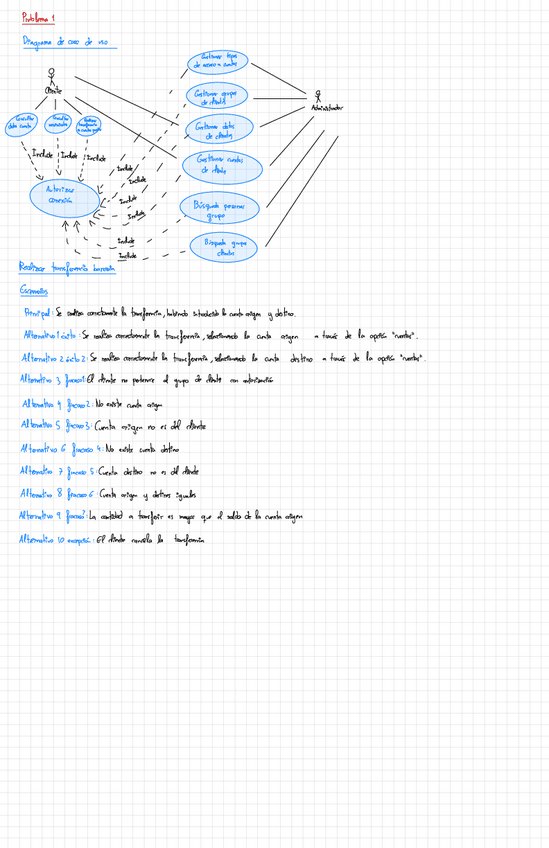 Problema 1
Diagrama de caso de uso
Cliente
Administrador
Consultar
datos cuenta
Realizar
transferencia
Autorizar
conexión
Include
Include
Include
Include
Include
Include
Include
Include
Include
Gestionar tipos
de acceso a cuentas
Gestionar grupos
de clientes
Gestionar datos
de clientes
Gestionar cuentas
de cliente
Búsqueda personas
grupo
Búsqueda grupos
clientes
Realizar transferencia bancaria
Escenarios
Principal: Se realiza correctamente la transferencia, habiendo introducido la cuenta origen y destino.
Alternativo 1 éxito: Se realiza correctamente la transferencia, seleccionando la cuenta origen a través de la opción "cuentas".
Alternativo 2 éxito 2: Se realiza correctamente la transferencia, seleccionando la cuenta destino a través de la opción "cuentas".
Alternativo 3 fracaso 1: El cliente no pertenece al grupo de cliente con autorización
Alternativo 4 fracaso 2: No existe cuenta origen
Alternativo 5 fracaso 3: Cuenta origen no es del cliente
Alternativo 6 fracaso 4: No existe cuenta destino
Alternativo 7 fracaso 5: Cuenta destino no es del cliente
Alternativo 8 fracaso 6: Cuenta origen y destino iguales
Alternativo 9 fracaso 7: La cantidad a transferir es mayor que el saldo de la cuenta origen
Alternativo 10 excepción: El cliente cancela la transferencia